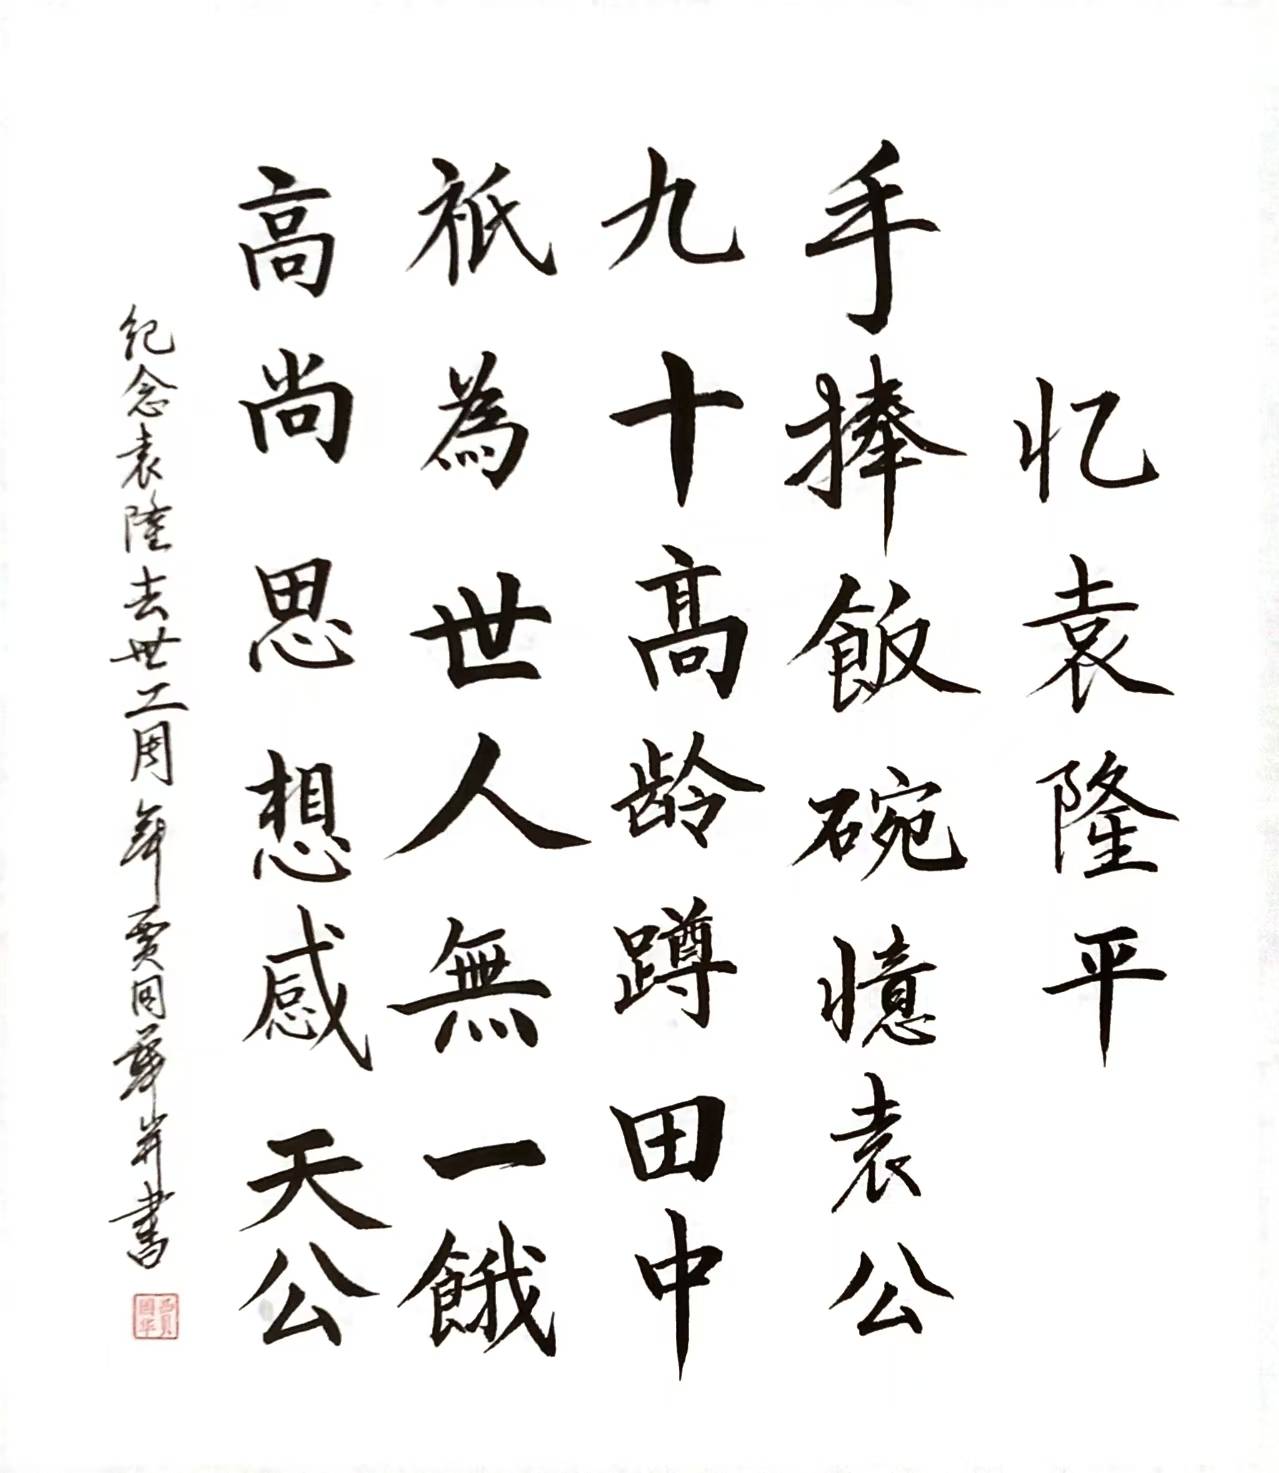 忆袁隆平
手捧飯碗憶袁公
九十髙龄蹲田中
祇為世人無一餓
高尚思想感天公
纪念袁隆去世二周年賈国華并書
西贝国华